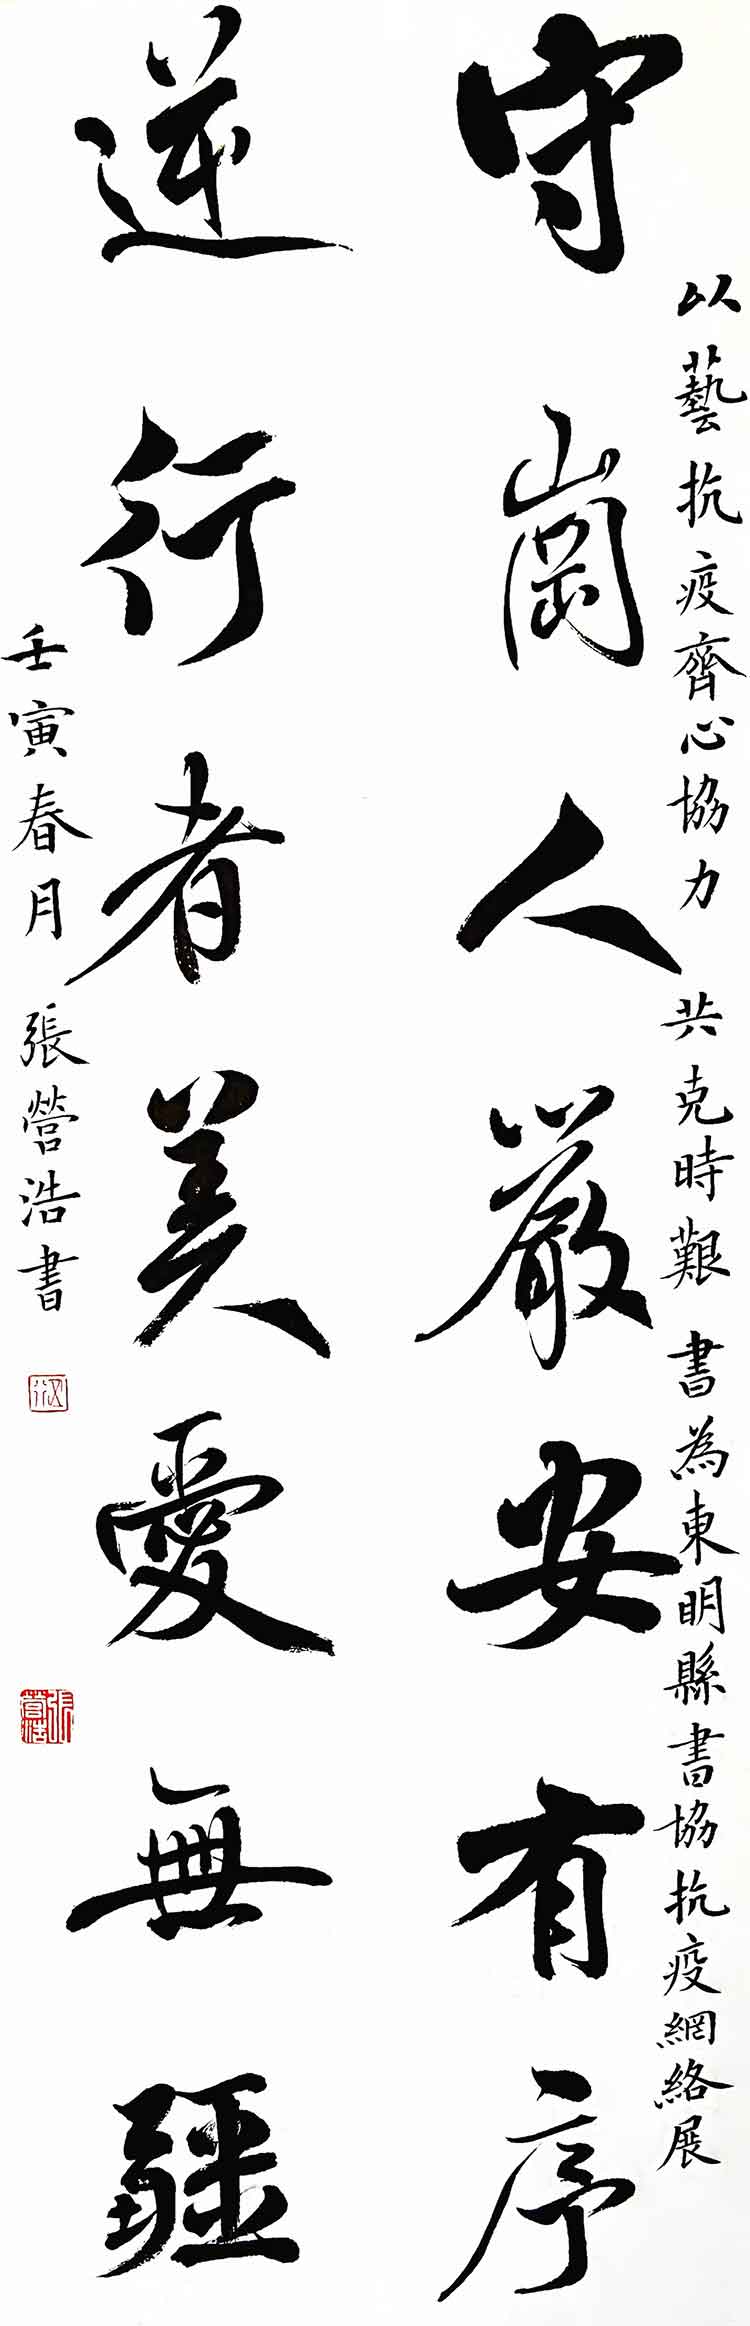 以藝抗疫齊心協力 共克時艱 書為東明縣書協抗疫網絡展
守崗人嚴安有序
逆行者美愛無疆
壬寅春月 張營浩書
張營浩